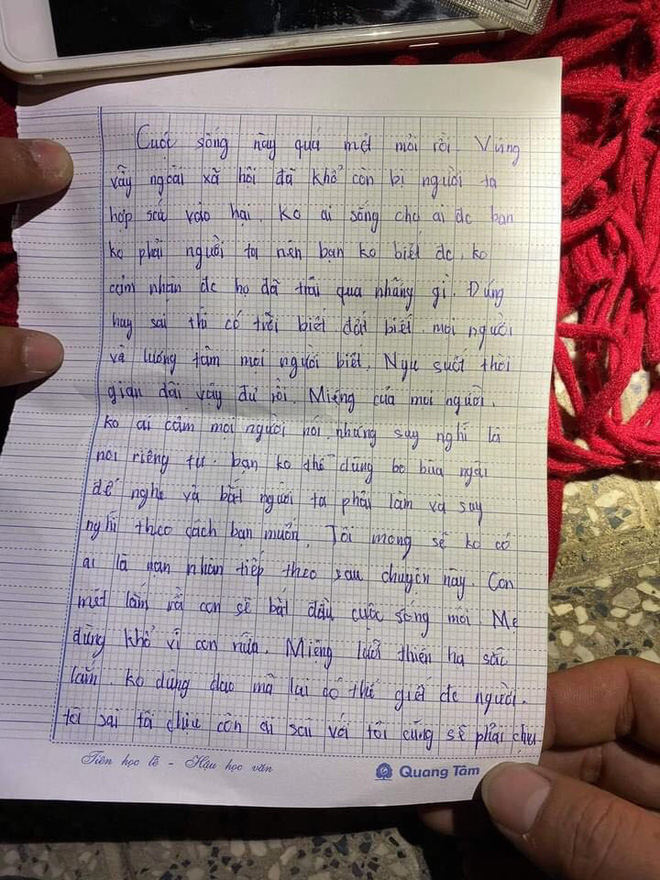 Cuộc sống này quá mệt mỏi rồi. Vùng
vẫy ngoài xã hội đã khổ còn bị người ta
hợp sức vào hại. Ko ai sống cho ai đc bạn
ko phải người ta nên bạn ko biết đc, ko
cảm nhận đc họ đã trải qua những gì. Đúng
hay sai thì có trời biết đất biết. mọi người
và lương tâm mọi người biết. Ngu suốt thời
gian dài vậy đủ rồi. Miệng của mọi người.
ko ai cấm mọi người nói. những suy nghĩ là
nơi riêng tư. bạn ko thể dùng bỏ bùa ngải
để nghe và bắt người ta phải làm và suy
nghĩ theo cách bạn muốn. Tôi mong sẽ ko có
ai là nạn nhân tiếp theo sau chuyện này. Con
mệt lắm rồi con sẽ bắt đầu cuộc sống mới. Mẹ
đừng khổ vì con nữa. Miệng lưỡi thiên hạ sắc
lắm. ko dùng dao mà lại có thể giết đc người.
tôi sai tôi chịu còn ai sai với tôi cũng sẽ phải chịu
Tiên học lễ - Hậu học văn
Quang Tâm